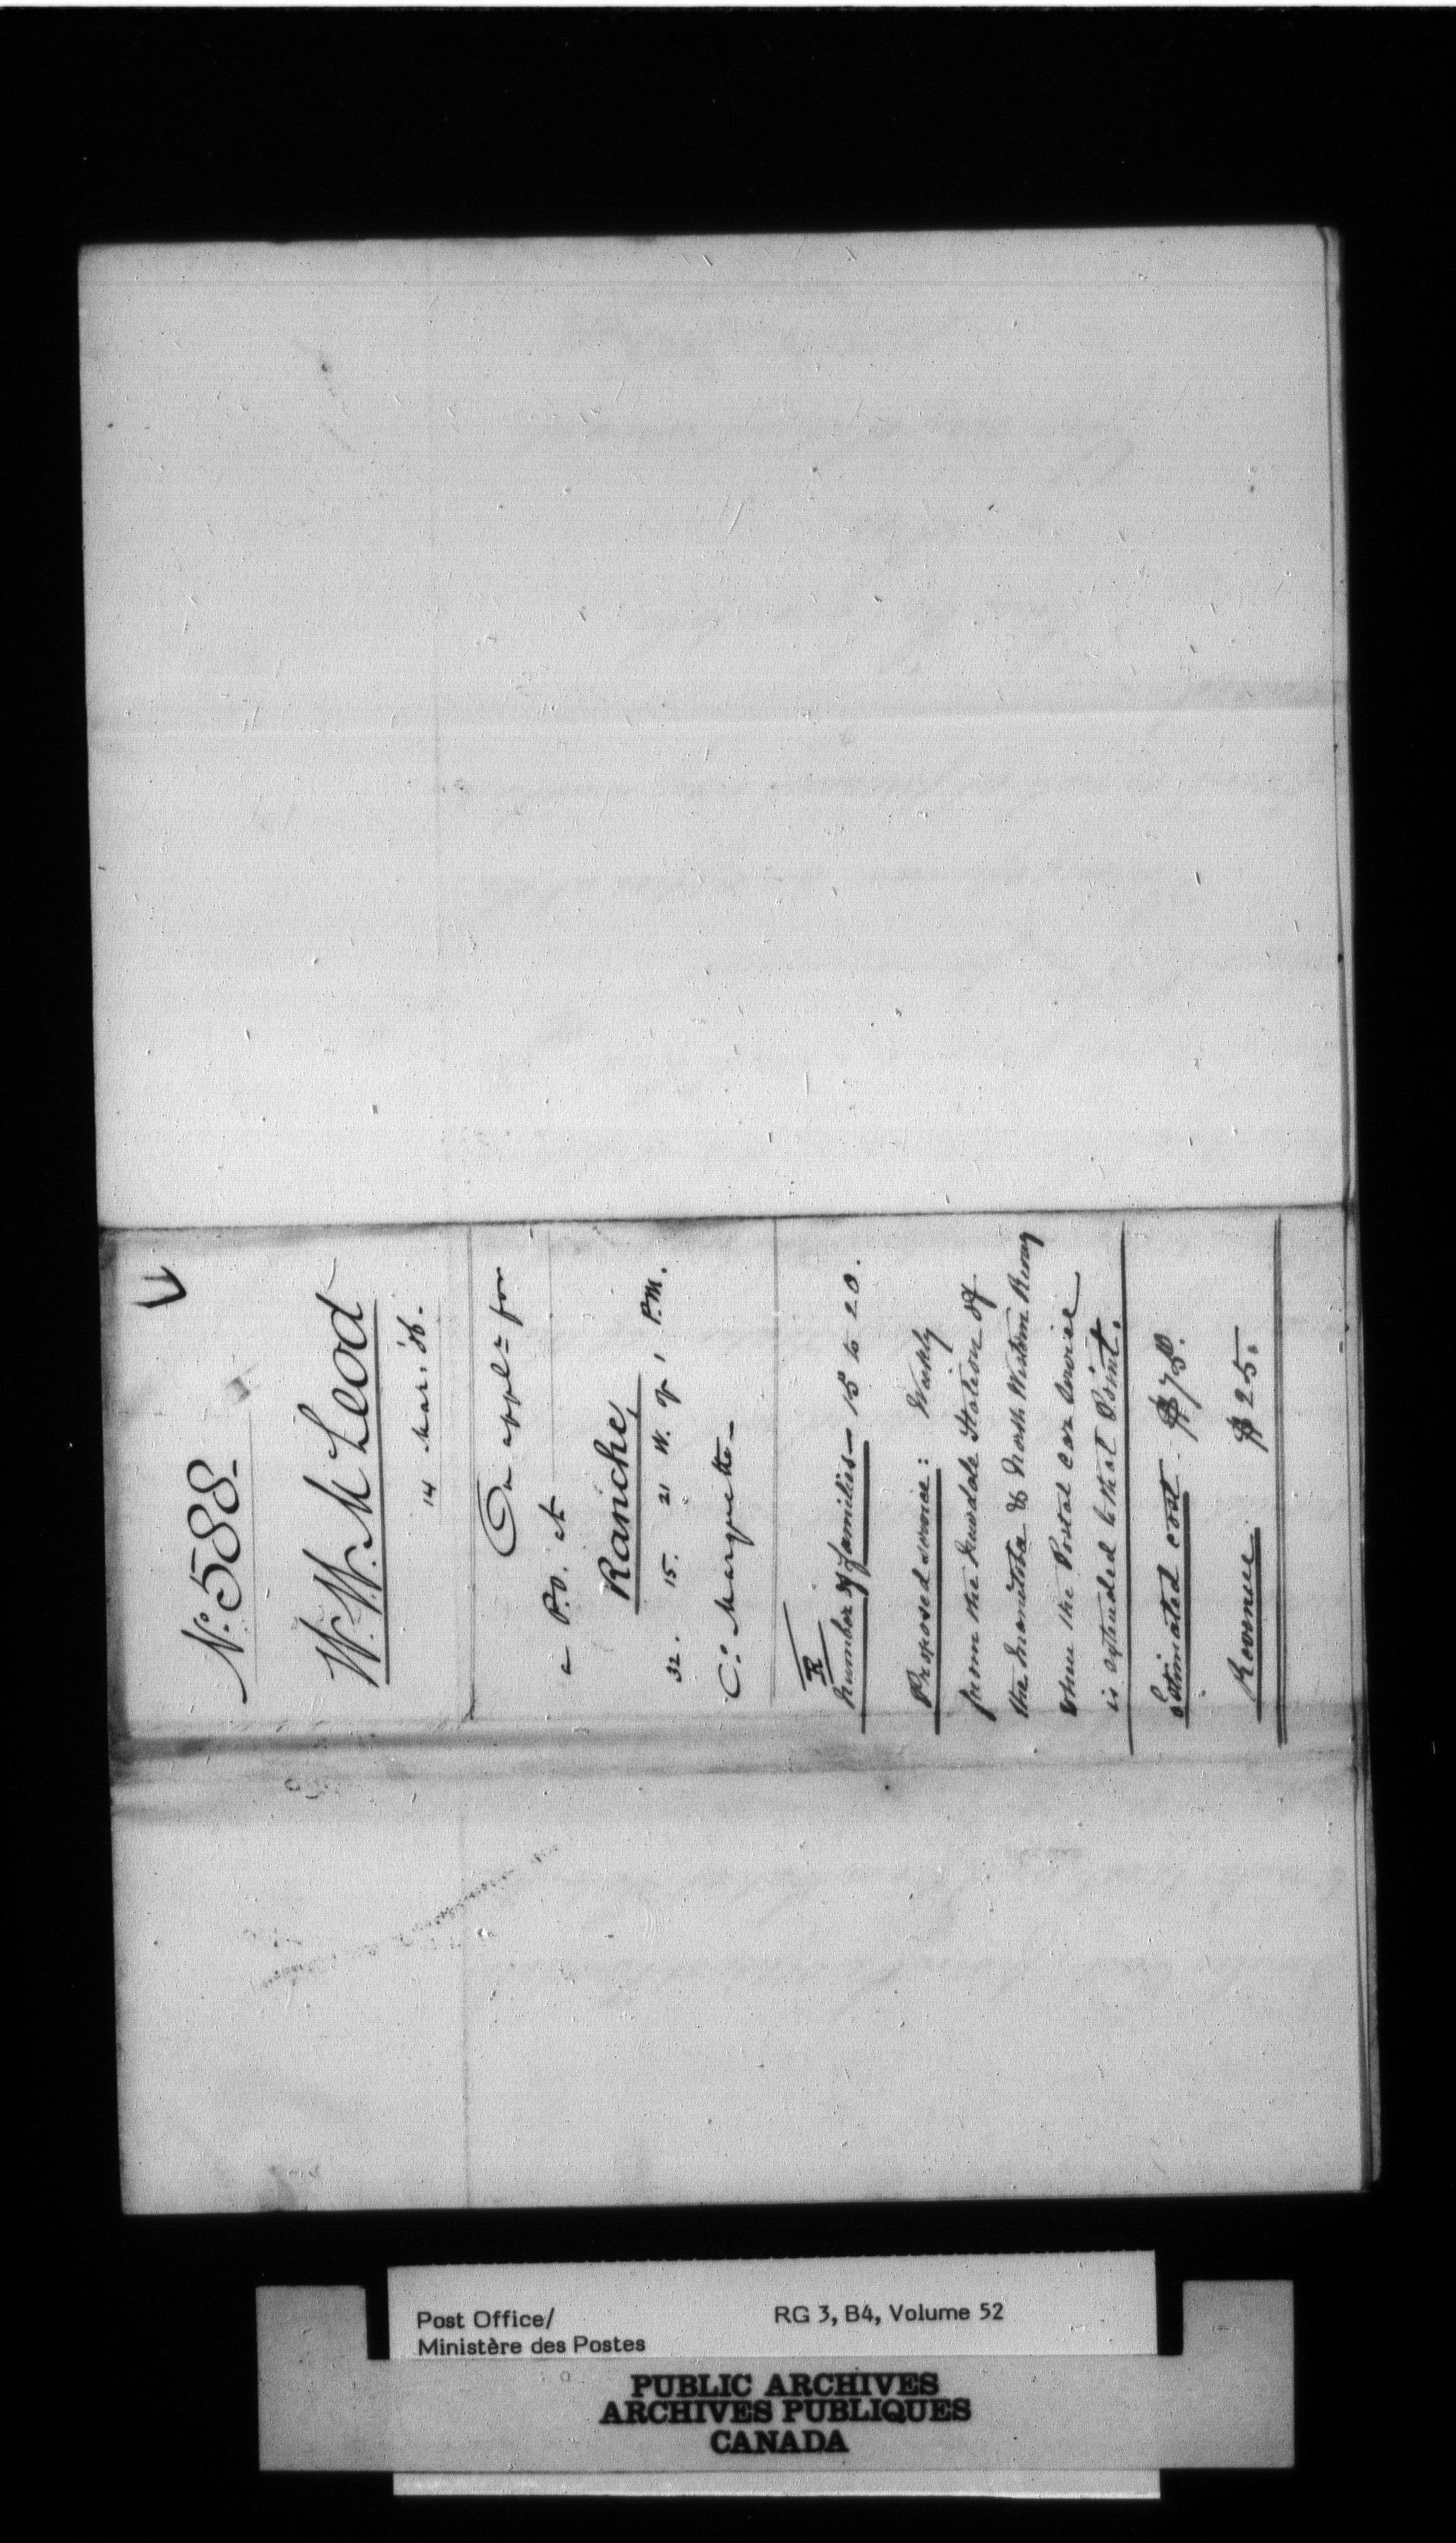 No. 588-
W. W. McLeod
14 Mar. '86.
On appln for
a P.O. at
Ranche,
32. 15. 21 W. of 1 P.M.
Co. Marquette-
R
Number of families- 15 to 20.
Proposed service: Weekly
from the Neepawa Station of
the Manitoba & North Western Rway
when the Postal car service
is extended to that Point.
Estimated cost - $75.
Revenue. $25.
Post Office/
Ministère des Postes
RG 3, B4, Volume 52
PUBLIC ARCHIVES
ARCHIVES PUBLIQUES
CANADA